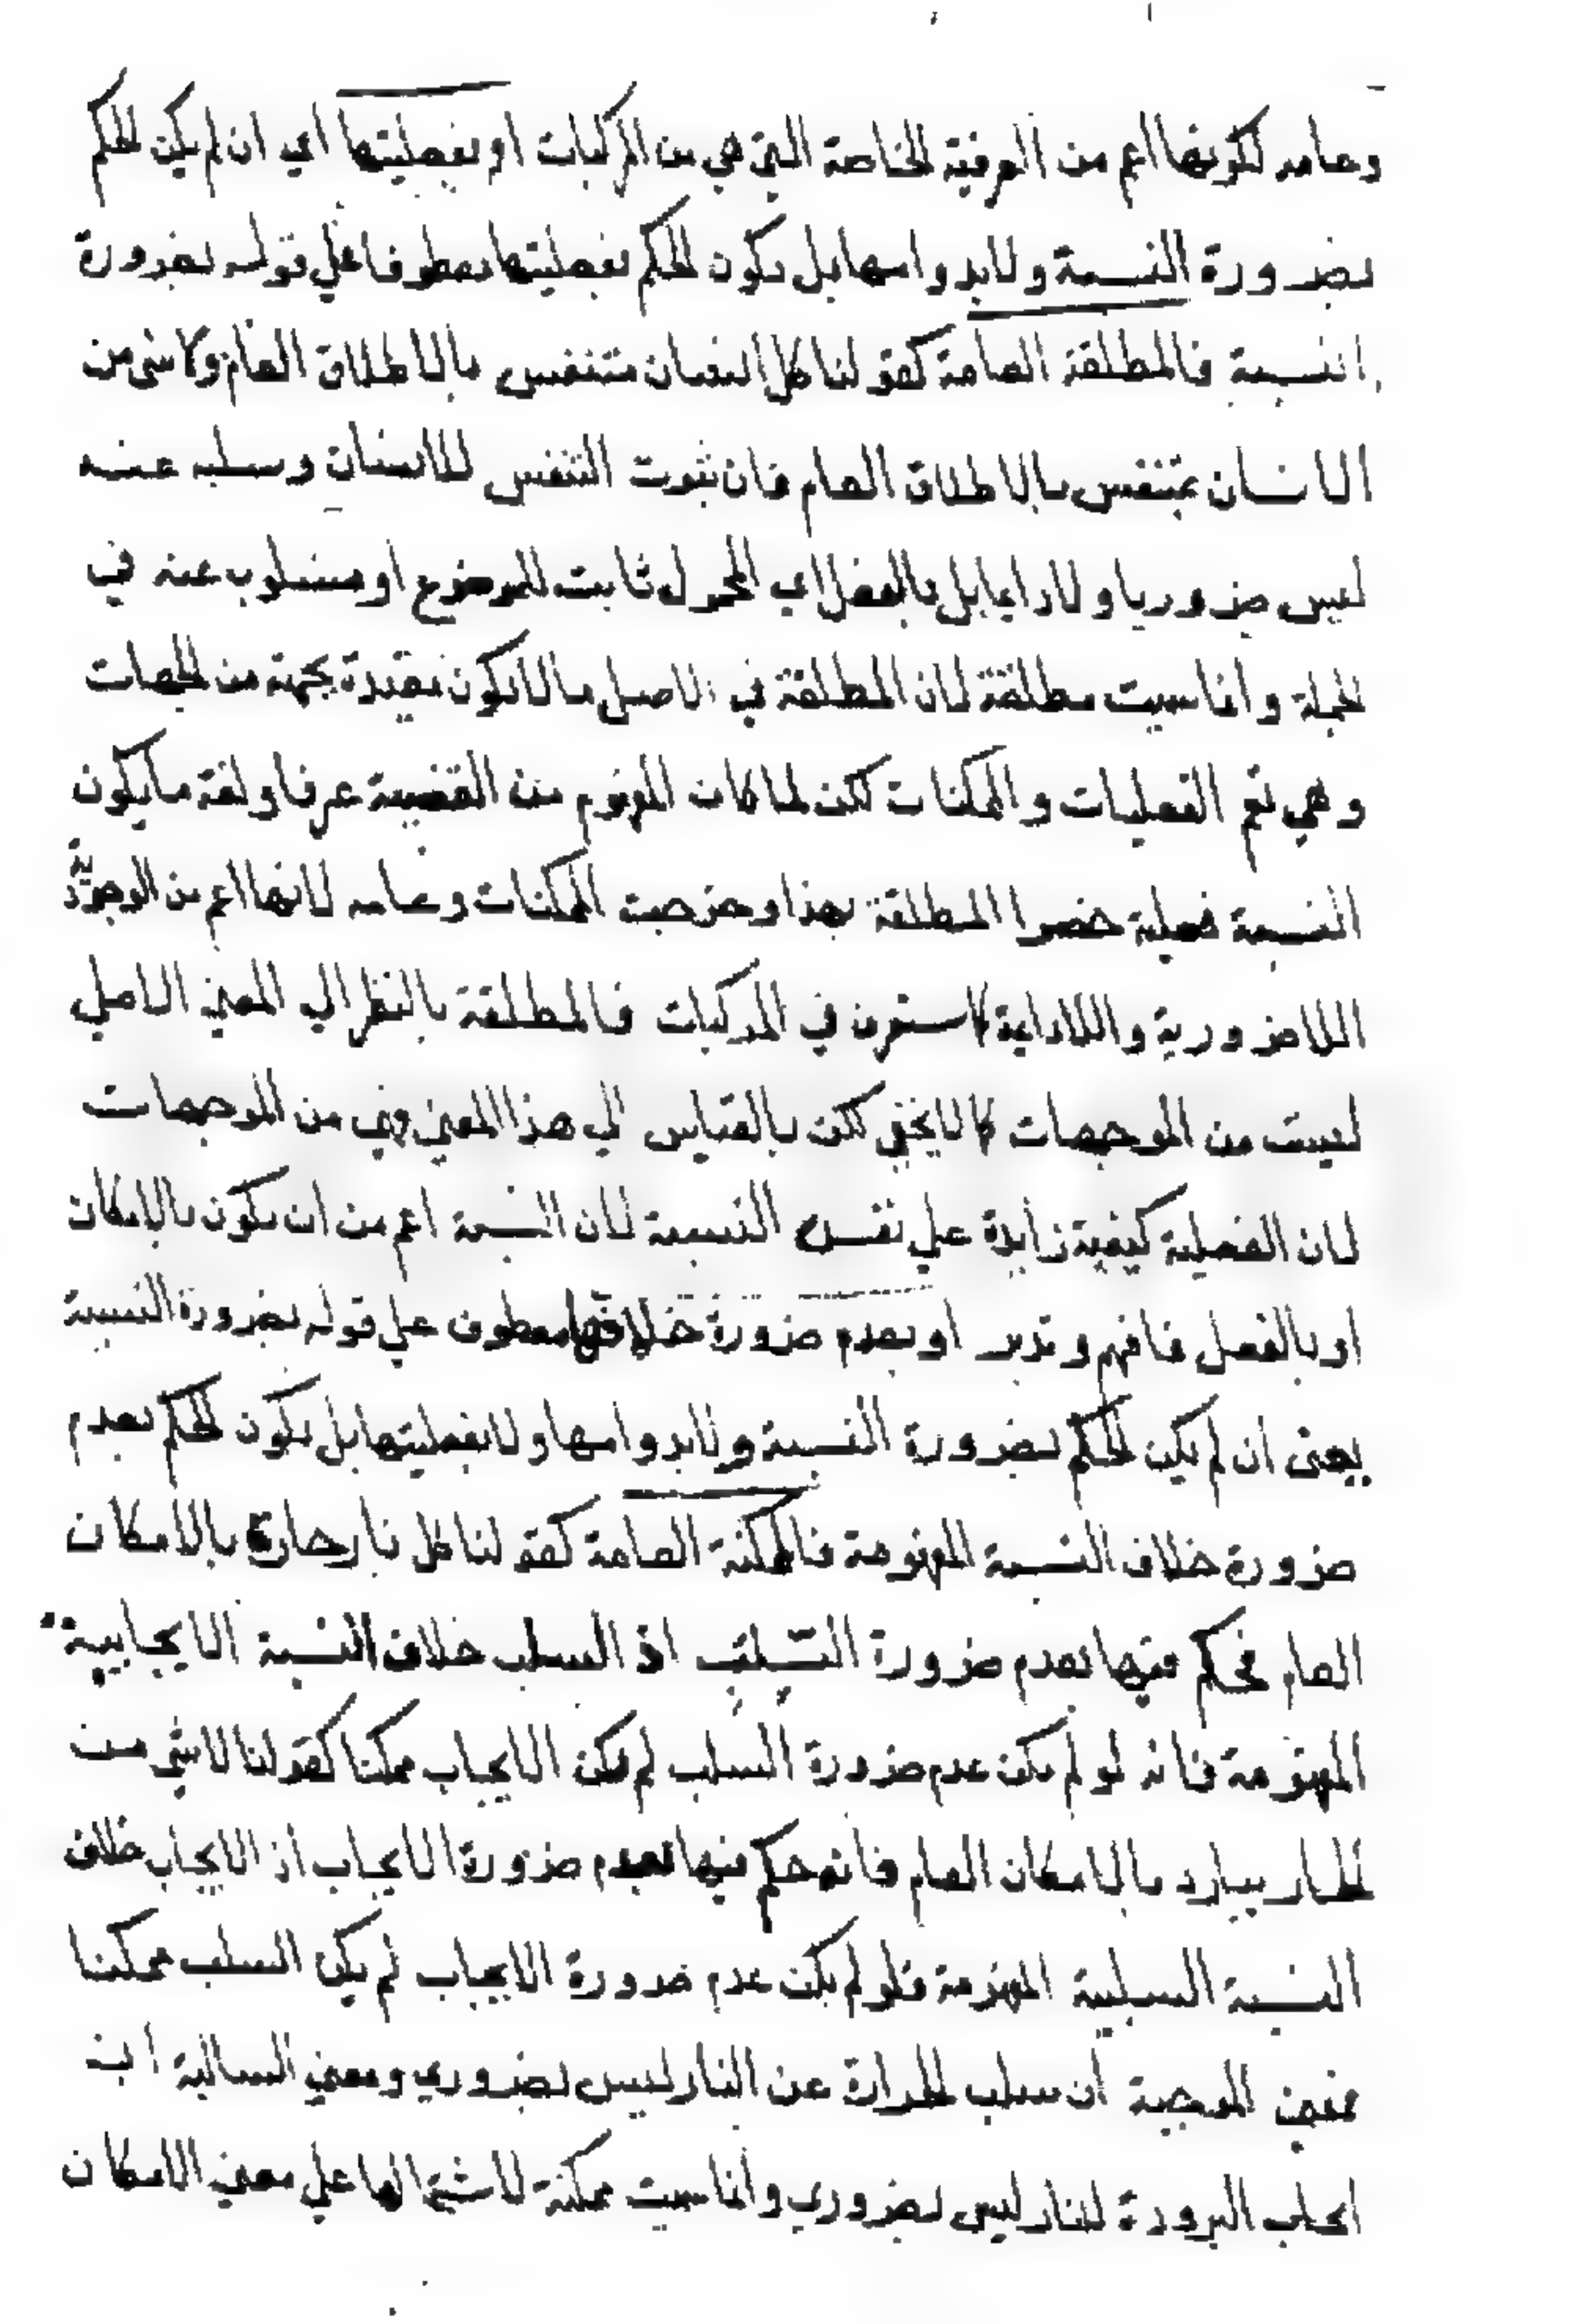 وعامه لكونها اعم من العرفية الخاصة التي هي من المركبات او بفعليتها اي ان لم يكن الحكم
بضرورة النسبة ولابدوامها بل يكون الحكم بفعليتها معطوفا على قوله بضرورة
النسبة فالمطلقة العامة كقولنا كل انسان متنفس بالاطلاق العام ولاشئ من
الانسان بمتنفس بالاطلاق العام فان ثبوت التنفس للانسان وسلبه عنه
ليس ضروريا ولادايما بل بالفعل اي المحمول ثابت للموضوع او مسلوب عنه في
الجملة وانما سميت مطلقة لان المطلقة في الاصل ما لا يكون مقيدة بجهة من الجهات
وهي تعم الفعليات والممكنات لكن لما كان المفهوم من القضية عرفا ولغة ما يكون
النسبة فعلية خصوا المطلقة بهذا وخرجت الممكنات وعامه لانها اعم من الوجودية
اللاضرورية واللادايمة كما ستعرف في المركبات فالمطلقة بالنظر الي المعني الاصلي
ليست من الموجهات كما لايخفي لكن بالقياس الي هذا المعني فهي من الموجهات
لان الفعلية كيفية زايدة علي نفس النسبة لان النسبة اعم من ان يكون بالامكان
او بالفعل فافهم وتدبر او بعدم ضرورة خلافها معطوف علي قوله بضرورة النسبة
يعني ان لم يكن الحكم بضرورة النسبة ولابدوامها ولابفعليتها بل يكون الحكم بعدم
ضرورة خلاف النسبة المفهومة فالممكنة العامة كقولنا كل نار حارة بالامكان
العام فحكم فيها بعدم ضرورة السلب اذ السلب خلاف النسبة الايجابية
المفهومة فانه لو لم يكن عدم ضرورة السلب لم يكن الايجاب ممكنا كقولنا لاشئ من
الحار ببارد بالامكان العام فانه حكم فيها بعدم ضرورة الايجاب اذ الايجاب خلاف
النسبة السلبية المفهومة فلو لم يكن عدم ضرورة الايجاب لم يكن السلب ممكنا
فمعني الموجبة ان سلب الحرارة عن النار ليس بضروري ومعني السالبة ان
ايجاب البرودة للنار ليس بضروري وانما سميت ممكنة لاشتمالها علي معني الامكان